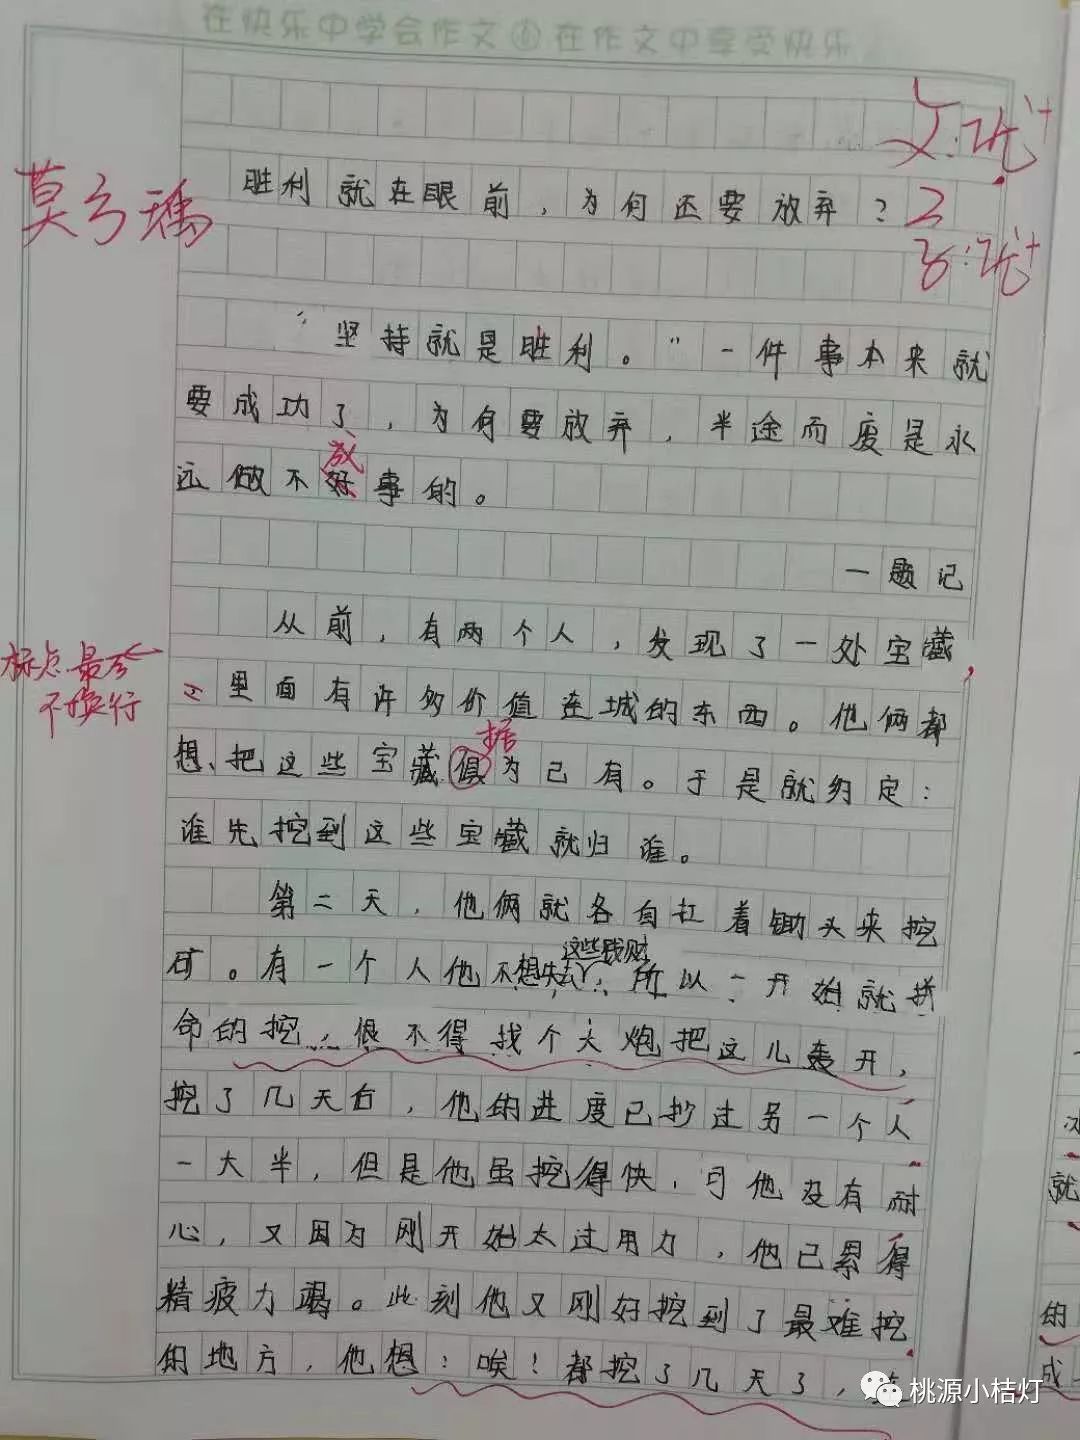 在快乐中学会作文⑥在作文中享受快乐
文:优+
莫
胜利就在眼前，为何还要放弃？
字:优+
“坚持就是胜利。”一件事本来就
要成功了，为何要放弃，半途而废是永
成
远做不好事的。
一题记
从前，有两个人，发现了一处宝藏，
标点最多
不换行
里面有许多价值连城的东西。他俩都
据
想、把这些宝藏俱为己有。于是就约定：
谁先挖到这些宝藏就归谁。
第二天，他俩就各自扛着锄头来挖
这些钱财
矿。有一个人他不想失去，所以一开始就拼
命的挖，恨不得找个大炮把这儿轰开，
挖了几天后，他的进度已抄过另一个人
一大半，但是他虽挖得快，可他没有耐
心，又因为刚开始太过用力，他已累得
精疲力竭。此刻他又刚好挖到了最难挖
的地方，他想：唉！都挖了几天了，
就
的
成
桃源小桔灯